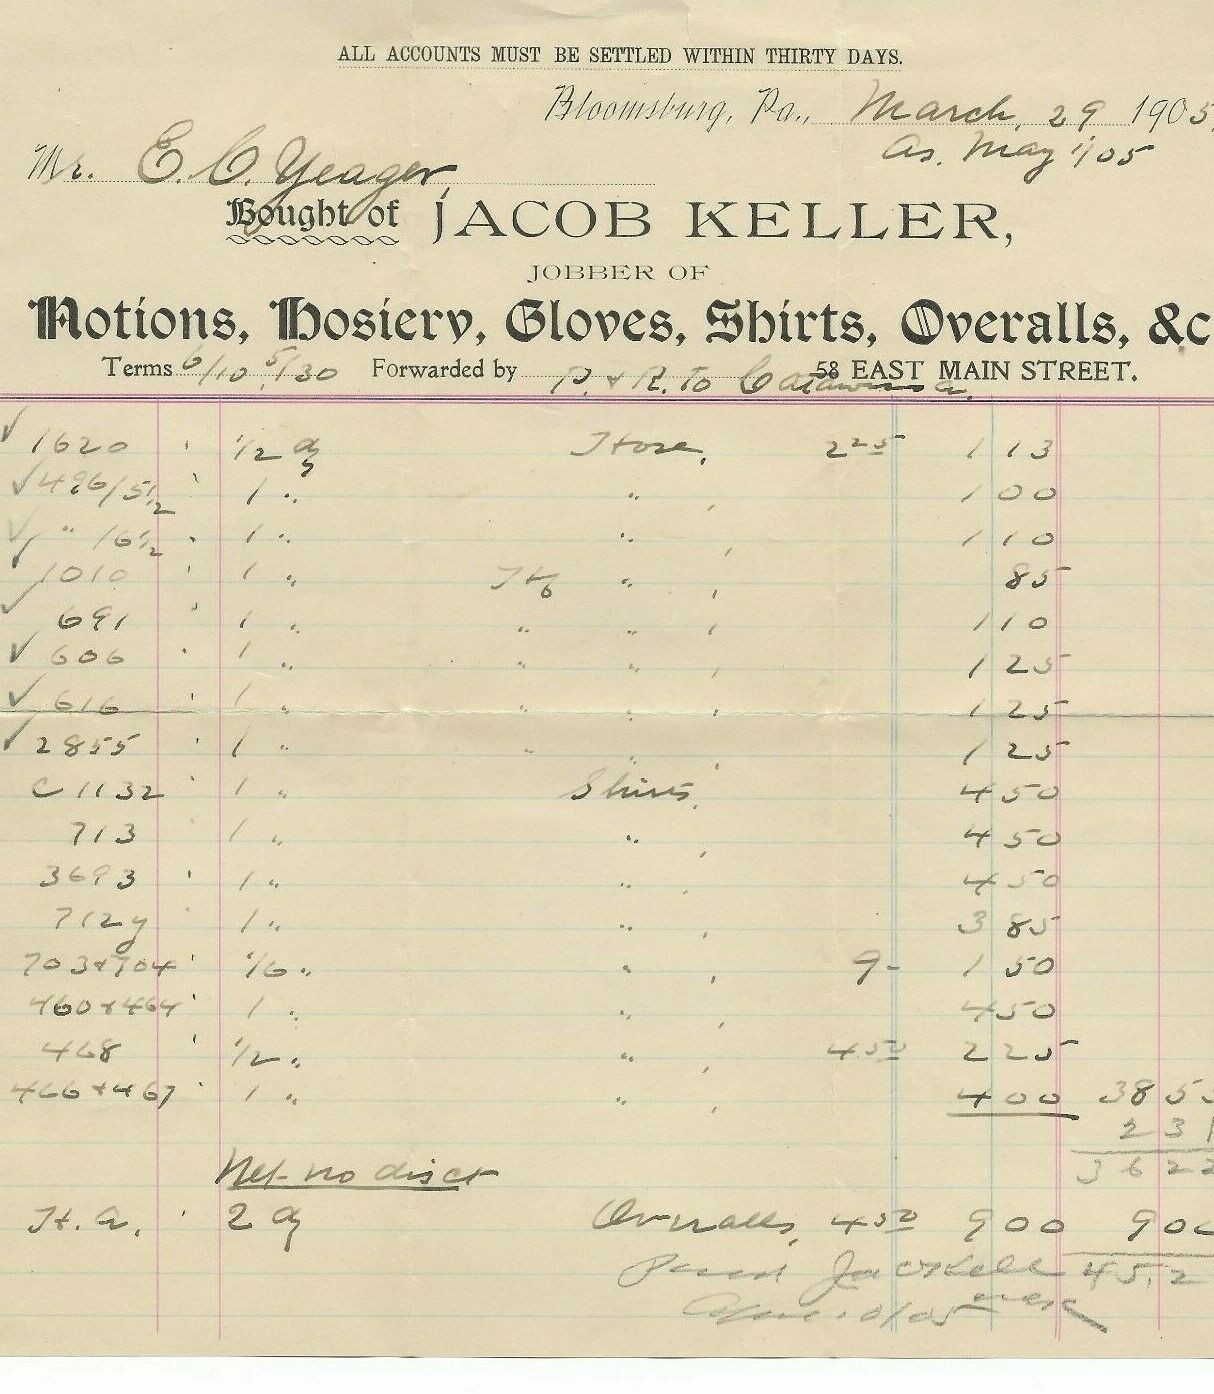 ALL ACCOUNTS MUST BE SETTLED WITHIN THIRTY DAYS.
Bloomsburg, Pa., March, 29 1905
As. May 1/05
Mr. E. C. Yeager,
Bought of JACOB KELLER,
JOBBER OF
Notions, Hosiery, Gloves, Shirts, Overalls, &c
Terms 6/10 5/30 Forwarded by P. & R. To Catawissa 58 EAST MAIN STREET.
1620 1/2 dz Hose, 2 25 1 13
496/5 1/2 1 " " 1 00
" /6 1/2 1 " " 1 10
1010 1 " " 85
691 1 " " " 1 10
606 1 " " " 1 25
616 1 " " " 1 25
2855 1 " " " 1 25
C 1132 1 " Shirts, 4 50
713 1 " " 4 50
3693 1 " " 4 50
712y 1 " " 3 85
703 & 704 1/6 " " 9- 1 50
460 & 464 1 " " 4 50
468 1/2 " " 4 50 2 25
466 & 467 1 " " 4 00 38 53
2 31
36 22
Net- no disct
H. a. 2 dz Overalls, 4 50 9 00 9 00
Jac Keller 45.2
10/05